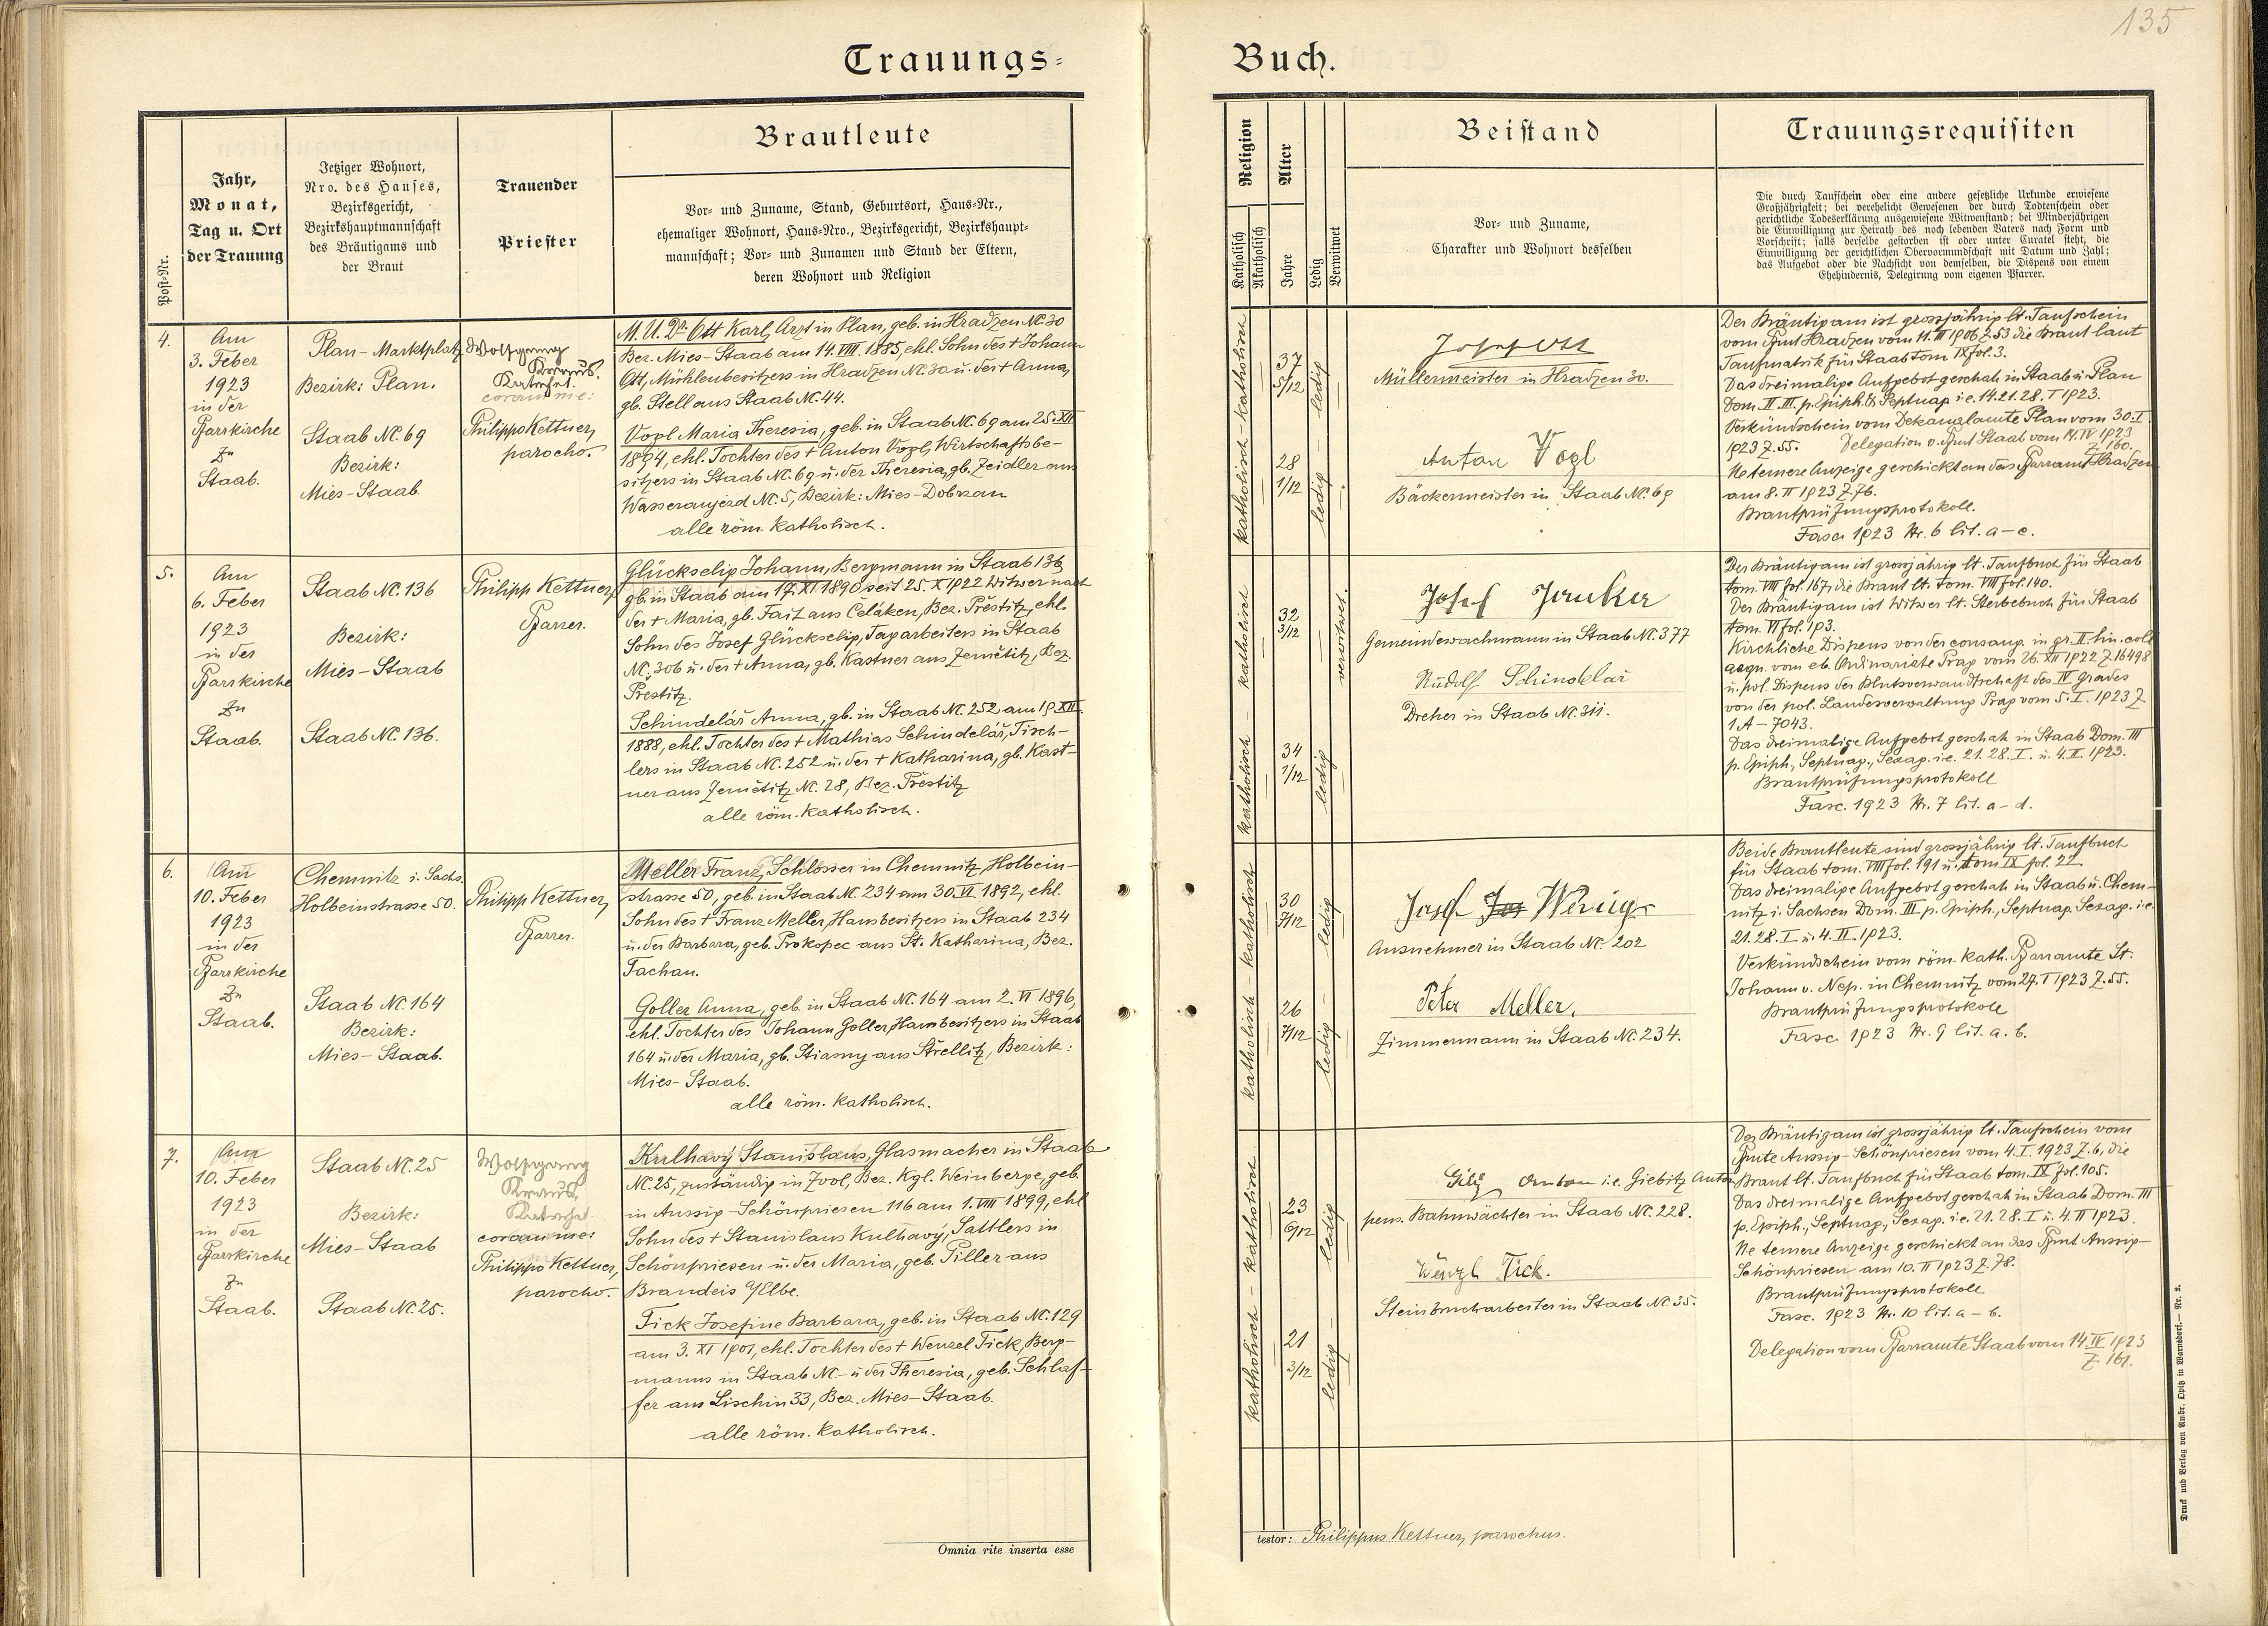 135
Trauungs-
Buch.
Post-Nr.
Jahr,
Monat,
Tag u. Ort
der Trauung
Jetziger Wohnort,
Nro. des Hauses,
Bezirksgericht,
Bezirkshauptmannschaft
des Bräutigams und
der Braut
Trauender
Priester
Brautleute
Vor- und Zuname, Stand, Geburtsort, Haus-Nr.,
ehemaliger Wohnort, Haus-Nro., Bezirksgericht, Bezirkshaupt-
mannschaft; Vor- und Zunamen und Stand der Eltern,
deren Wohnort und Religion
Religion
Katholisch
Akatholisch
Alter
Jahre
Ledig
Verwitwet
Beistand
Vor- und Zuname,
Charakter und Wohnort desselben
Trauungsrequisiten
Die durch Taufschein oder eine andere gesetzliche Urkunde erwiesene
Großjährigkeit; bei verehelicht Gewesenen der durch Todtenschein oder
gerichtliche Todeserklärung ausgewiesene Witwenstand; bei Minderjährigen
die Einwilligung zur Heirath des noch lebenden Vaters nach Form und
Vorschrift; falls derselbe gestorben ist oder unter Curatel steht, die
Einwilligung der gerichtlichen Obervormundschaft mit Datum und Zahl;
das Aufgebot oder die Nachsicht von demselben, die Dispens von einem
Ehehindernis, Delegirung vom eigenen Pfarrer.
4.
Am
3. Feber
1923
in der
Pfarrkirche
zu
Staab.
Plan-Marktplatz
Bezirk: Plan.
Staab NC. 69
Bezirk:
Mies-Staab
Wolfgang
Kraus.
Katechet.
coram me:
Philippo Kettner,
parocho.
M.U.Dr. Ott Karl, Arzt in Plan, geb. in Hradzen NC 30
Bez. Mies-Staab am 14. VIII. 1885, ehl. Sohn des + Johann
Ott, Mühlenbesitzers in Hradzen NC. 30 u. der + Anna,
gb. Stell aus Staab NC. 44.
Vogl Maria Theresia, geb. in Staab NC. 69 am 25. XII
1894, ehl. Tochter des + Anton Vogl, Wirtschaftsbe-
sitzers in Staab NC. 69 u. der Theresia, gb. Zeidler aus
Wasseraujezd NC. 5, Bezirk: Mies-Dobrzan
alle röm. katholisch.
katholisch - katholisch
37
5/12
ledig
28
1/12
ledig
Josef Ott
Müllermeister in Hradzen 30.
Anton Vogl
Bäckermeister in Staab NC. 69
Der Bräutigam ist grossjährig lt. Taufschein
vom Pfmt Hradzen vom 11. III 1906 Z. 53 die Braut laut
Taufmatrik für Staab tom IX fol. 3.
Das dreimalige Aufgebot geschah in Staab u. Plan
Dom. II. III. p. Epiph. & Septuag i.e. 14. 21. 28. I 1923.
Verkündschein vom Dekanalamte Plan vom 30. I
1923 Z. 55. Delegation v. Pfmt Staab vom 14. IV 1923
Z. 160.
Ne temere Anzeige geschickt an das Pfarramt Hradzen
am 8. II 1923 Z. 76.
Brautprüfungsprotokoll.
Fasc. 1923 Nr. 6 lit. a-c.
5.
Am
6. Feber
1923
in der
Pfarrkirche
zu
Staab.
Staab NC. 136
Bezirk:
Mies-Staab
Staab NC. 136.
Philipp Kettner,
Pfarrer.
Glückselig Johann, Bergmann in Staab 136
gb. in Staab am 19. XI 1890 seit 25. X 1922 Witwer nach
der + Maria, gb. Fait aus Čelaken, Bez. Přestitz, ehl.
Sohn des Josef Glückselig, Tagarbeiters in Staab
NC. 306 u. der + Anna, gb. Kastner aus Zemětitz, Bez.
Přestitz.
Schindelář Anna, gb. in Staab NC. 252 am 19. XII.
1888, ehl. Tochter des + Mathias Schindelář, Tisch-
lers in Staab NC. 252 u. der + Katharina, gb. Kast-
ner aus Zemětitz NC. 28, Bez. Přestitz
alle röm. katholisch.
katholisch - katholisch
32
3/12
verwitwet.
34
1/12
ledig
Josef Junker
Gemeindewachmann in Staab NC. 377
Rudolf Schindelář
Dreher in Staab NC. 311.
Der Bräutigam ist grossjährig lt. Taufbuch für Staab
tom. VIII fol. 167, die Braut lt. tom. VIII fol. 140.
Der Bräutigam ist Witwer lt. Sterbebuch für Staab
tom. VI fol. 193.
Kirchliche Dispens von der consang. in gr. II. lin. coll
aequ. vom eb. Ordinariate Prag vom 26. XII 1922 Z. 16498
u. pol. Dispens der Blutsverwandtschaft des IV Grades
von der pol. Landesverwaltung Prag vom 5. I. 1923 Z.
1.A-7043.
Das dreimalige Aufgebot geschah in Staab Dom. III
p. Epiph., Septuag., Sexag. i.e. 21. 28. I. u. 4. II. 1923.
Brautprüfungsprotokoll
Fasc. 1923 Nr. 7 lit. a-d.
6.
Am
10. Feber
1923
in der
Pfarrkirche
zu
Staab.
Chemnitz i. Sachs.
Holbeinstrasse 50.
Staab NC. 164
Bezirk:
Mies-Staab.
Philipp Kettner,
Pfarrer.
Meller Franz, Schlosser in Chemnitz, Holbein-
strasse 50, geb. in Staab NC. 234 am 30. VI. 1892, ehl.
Sohn des + Franz Meller, Hausbesitzers in Staab 234
u. der Barbara, geb. Prokopec aus St. Katharina, Bez.
Tachau.
Goller Anna, geb. in Staab NC. 164 am 2. VI 1896,
ehl. Tochter des Johann Goller, Hausbesitzers in Staab
164 u. der Maria, gb. Stiasny aus Strellitz, Bezirk:
Mies-Staab.
alle röm. katholisch.
katholisch - katholisch
30
7/12
ledig
26
7/12
ledig
Josef Wenig
Ausnehmer in Staab NC. 202
Peter Meller,
Zimmermann in Staab NC. 234.
Beide Brautleute sind grossjährig lt. Taufbuch
für Staab tom. VIII fol. 191 u. tom IX fol. 22
Das dreimalige Aufgebot geschah in Staab u. Chem-
nitz i. Sachsen Dom. III p. Epiph., Septuag. Sexag. i.e.
21. 28. I u. 4. II. 1923.
Verkündschein vom röm. kath. Pfarramte St.
Johann v. Nep. in Chemnitz vom 29. I 1923 Z. 55.
Brautprüfungsprotokoll
Fasc. 1923 Nr. 9 lit. a. b.
7.
Am
10. Feber
1923
in der
Pfarrkirche
zu
Staab.
Staab NC. 25
Bezirk:
Mies-Staab
Staab NC. 25.
Wolfgang
Kraus,
Katechet.
coram me:
Philippo Kettner,
parocho.
Kulhavý Stanislaus, Glasmacher in Staab
NC. 25, zuständig in Zvol, Bez. Kgl. Weinberge, geb.
in Aussig-Schönpriesen 116 am 1. VIII 1899, ehl
Sohn des + Stanislaus Kulhavý, Sattlers in
Schönpriesen u. der Maria, geb. Piller aus
Brandeis a/Elbe.
Fick Josefine Barbara, geb. in Staab NC. 129
am 3. XI 1901, ehl. Tochter des + Wenzel Fick, Berg-
manns in Staab NC. - u der Theresia, geb. Schlaf-
fer aus Lischin 33, Bez. Mies-Staab.
alle röm. katholisch.
katholisch - katholisch
23
6/12
ledig
21
3/12
ledig
Anton i.e. Giebitz Anton
pens. Bahnwächter in Staab NC. 228.
Wenzl Fick.
Steinbrucharbeiter in Staab NC. 35.
Der Bräutigam ist grossjährig lt. Taufschein vom
Pfmte Aussig-Schönpriesen vom 4. I. 1923 Z. 6, die
Braut lt. Taufbuch für Staab tom. IX fol. 105.
Das dreimalige Aufgebot geschah in Staab Dom. III
p. Epiph., Septuag., Sexag. i.e. 21. 28. I u. 4. II 1923.
Ne temere Anzeige geschickt an das Pfmt Aussig-
Schönpriesen am 10. II 1923 Z. 78.
Brautprüfungsprotokoll
Fasc. 1923 Nr. 10 lit. a-b.
Delegation vom Pfarramte Staab vom 14. IV 1923
Z. 161.
Omnia rite inserta esse
testor: Philippus Kettner, parochus.
Druck und Verlag von Ambr. Opitz in Warnsdorf. — Nr. 2.